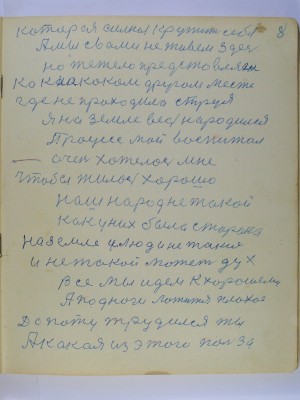 8
которая сильно крутит себя
А мы с вами не живем здесь
но тяжело представляем
Ко какаком другом месте
где не проходила струя
Я на Земле весь народился
Процесс мой воспитал
— очен хотелось мне
Чтобы жилось хорошо
наш народ не такой
как у них была сторона
На земле и люди не такие
и не такой может дух
Все мы идем к хорошему
А под ноги ложится плохое
До поту трудился ты
А какая из этого польза